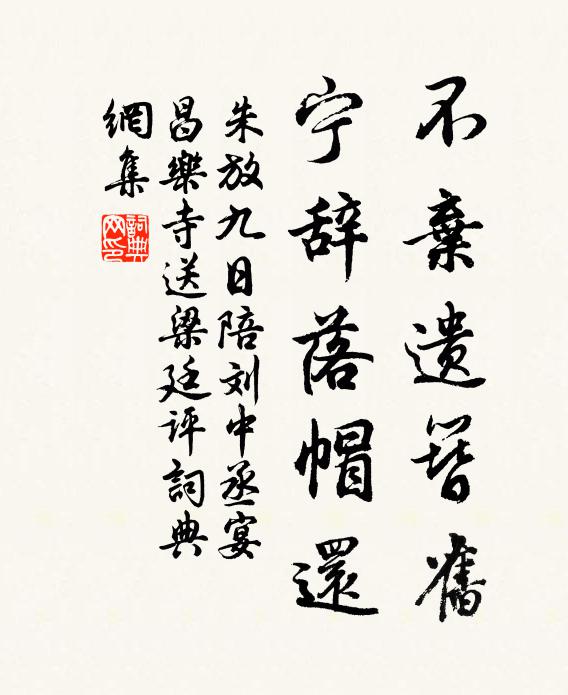 不棄遺簪舊
宁辞落帽還
朱放九日陪刘中丞宴
昌樂寺送梁廷評詞典
網集
詞典網印